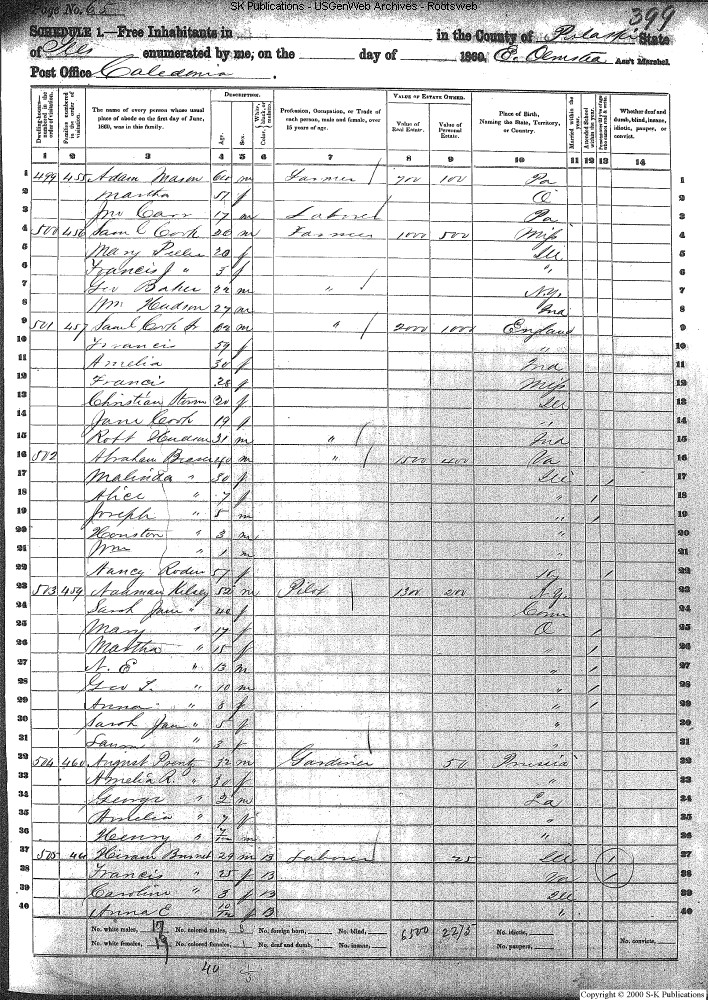 SK Publications - USGenWeb Archives - Rootsweb
Page No. 65
399
SCHEDULE 1.—Free Inhabitants in in the County of Pulaski State
of Ills enumerated by me, on the day of 1860. E. Olmsted Ass't Marshal.
Post Office Caledonia.
Dwelling-houses—numbered in the order of visitation.
Families numbered in the order of visitation.
The name of every person whose usual place of abode on the first day of June, 1860, was in this family.
DESCRIPTION.
Age.
Sex.
Color, White, black, or mulatto.
Profession, Occupation, or Trade of each person, male and female, over 15 years of age.
VALUE OF ESTATE OWNED.
Value of Real Estate.
Value of Personal Estate.
Place of Birth, Naming the State, Territory, or Country.
Married within the year.
Attended School within the year.
Whether deaf and dumb, blind, insane, idiotic, pauper, or convict.
1 2 3 4 5 6 7 8 9 10 11 12 13 14
1 499 455 Adam Mason m Farmer 700 100 Pa 1
2 Martha 51 f O 2
3 Jno Carr 17 m Laborer Pa 3
4 500 456 Saml C Cook m Farmer 1000 500 Miss 4
5 Mary 20 f Ill 5
6 Francis J " 3 f " 6
7 Geo Baker 22 m " N.Y. 7
8 Wm Hudson 27 m Ind 8
9 501 457 Saml Cook Sr 62 m " 2000 1000 England 9
10 Francis 59 f " 10
11 Amelia 30 f Ind 11
12 Francis 28 f Miss 12
13 Christian 20 f Ill 13
14 Jane Cook 19 f " 14
15 Robt Hudson 31 m " Ind 15
16 502 Abraham 40 m " 1500 400 Va 16
17 Malinda " 30 f Ill / 17
18 Alice " 7 f " / 18
19 Joseph " 5 m " / 19
20 Houston " 3 m " 20
21 Wm " 1 m " 21
22 Nancy Roden 57 f Ky / 22
23 503 459 Naaman Kelsey 52 m Pilot 1300 200 N.Y. 23
24 Sarah Jane " 40 f Conn 24
25 Mary " 17 f O / 25
26 Martha " 15 f " / 26
27 N. E " 13 m " / 27
28 Geo L. " 10 m " / 28
29 Anna " 8 f " / 29
30 Sarah Jane " 5 f " 30
31 Laura " 3 f " 31
32 504 460 August 32 m Gardiner 50 Prussia 32
33 Amelia R. " 30 f " 33
34 George " 2 m La 34
35 Amelia " 7 f " 35
36 Henry " m " 36
37 505 461 Hiram Burnet 29 m B Laborer 25 Ill 1 37
38 Francis " 25 f B 1 38
39 Caroline " 3 f B Ill 39
40 Anna E 10/12 f B " 40
No. white males, 17 No. colored males, No. foreign born, No. blind, 6500 2275 No. idiotic,
No. white females, 19 No. colored females, No. deaf and dumb, No. insane, No. paupers, No. convicts,
40
Copyright © 2000 S-K Publications